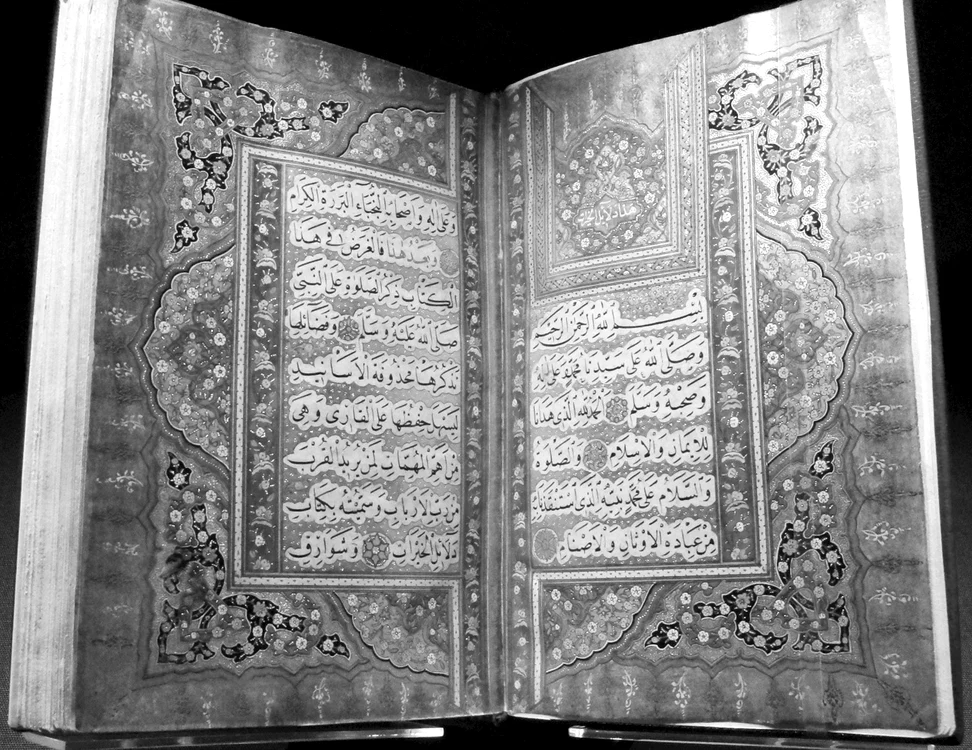 هذا دلائل الخيرات
بسم الله الرحمن الرحيم
وصلى الله على سيدنا محمد وعلى اله
وصحبه وسلم الحمد لله الذى هدانا
للايمان والاسلام والصلوة
والسلام على محمد نبيه الذى استنقذنا به
من عبادة الاوثان والاصنام
وعلى اله واصحابه النجباء البررة الكرام
وبعد هذا فالغرض فى هذا
الكتاب ذكر الصلوة على النبى
صلى الله عليه وسلم وفضائلها
نذكرها محذوفة الاسانيد
ليسهل حفظها على القارى وهى
من اهم المهمات لمن يريد القرب
من رب الارباب وسميته بكتاب
دلائل الخيرات وشوارق